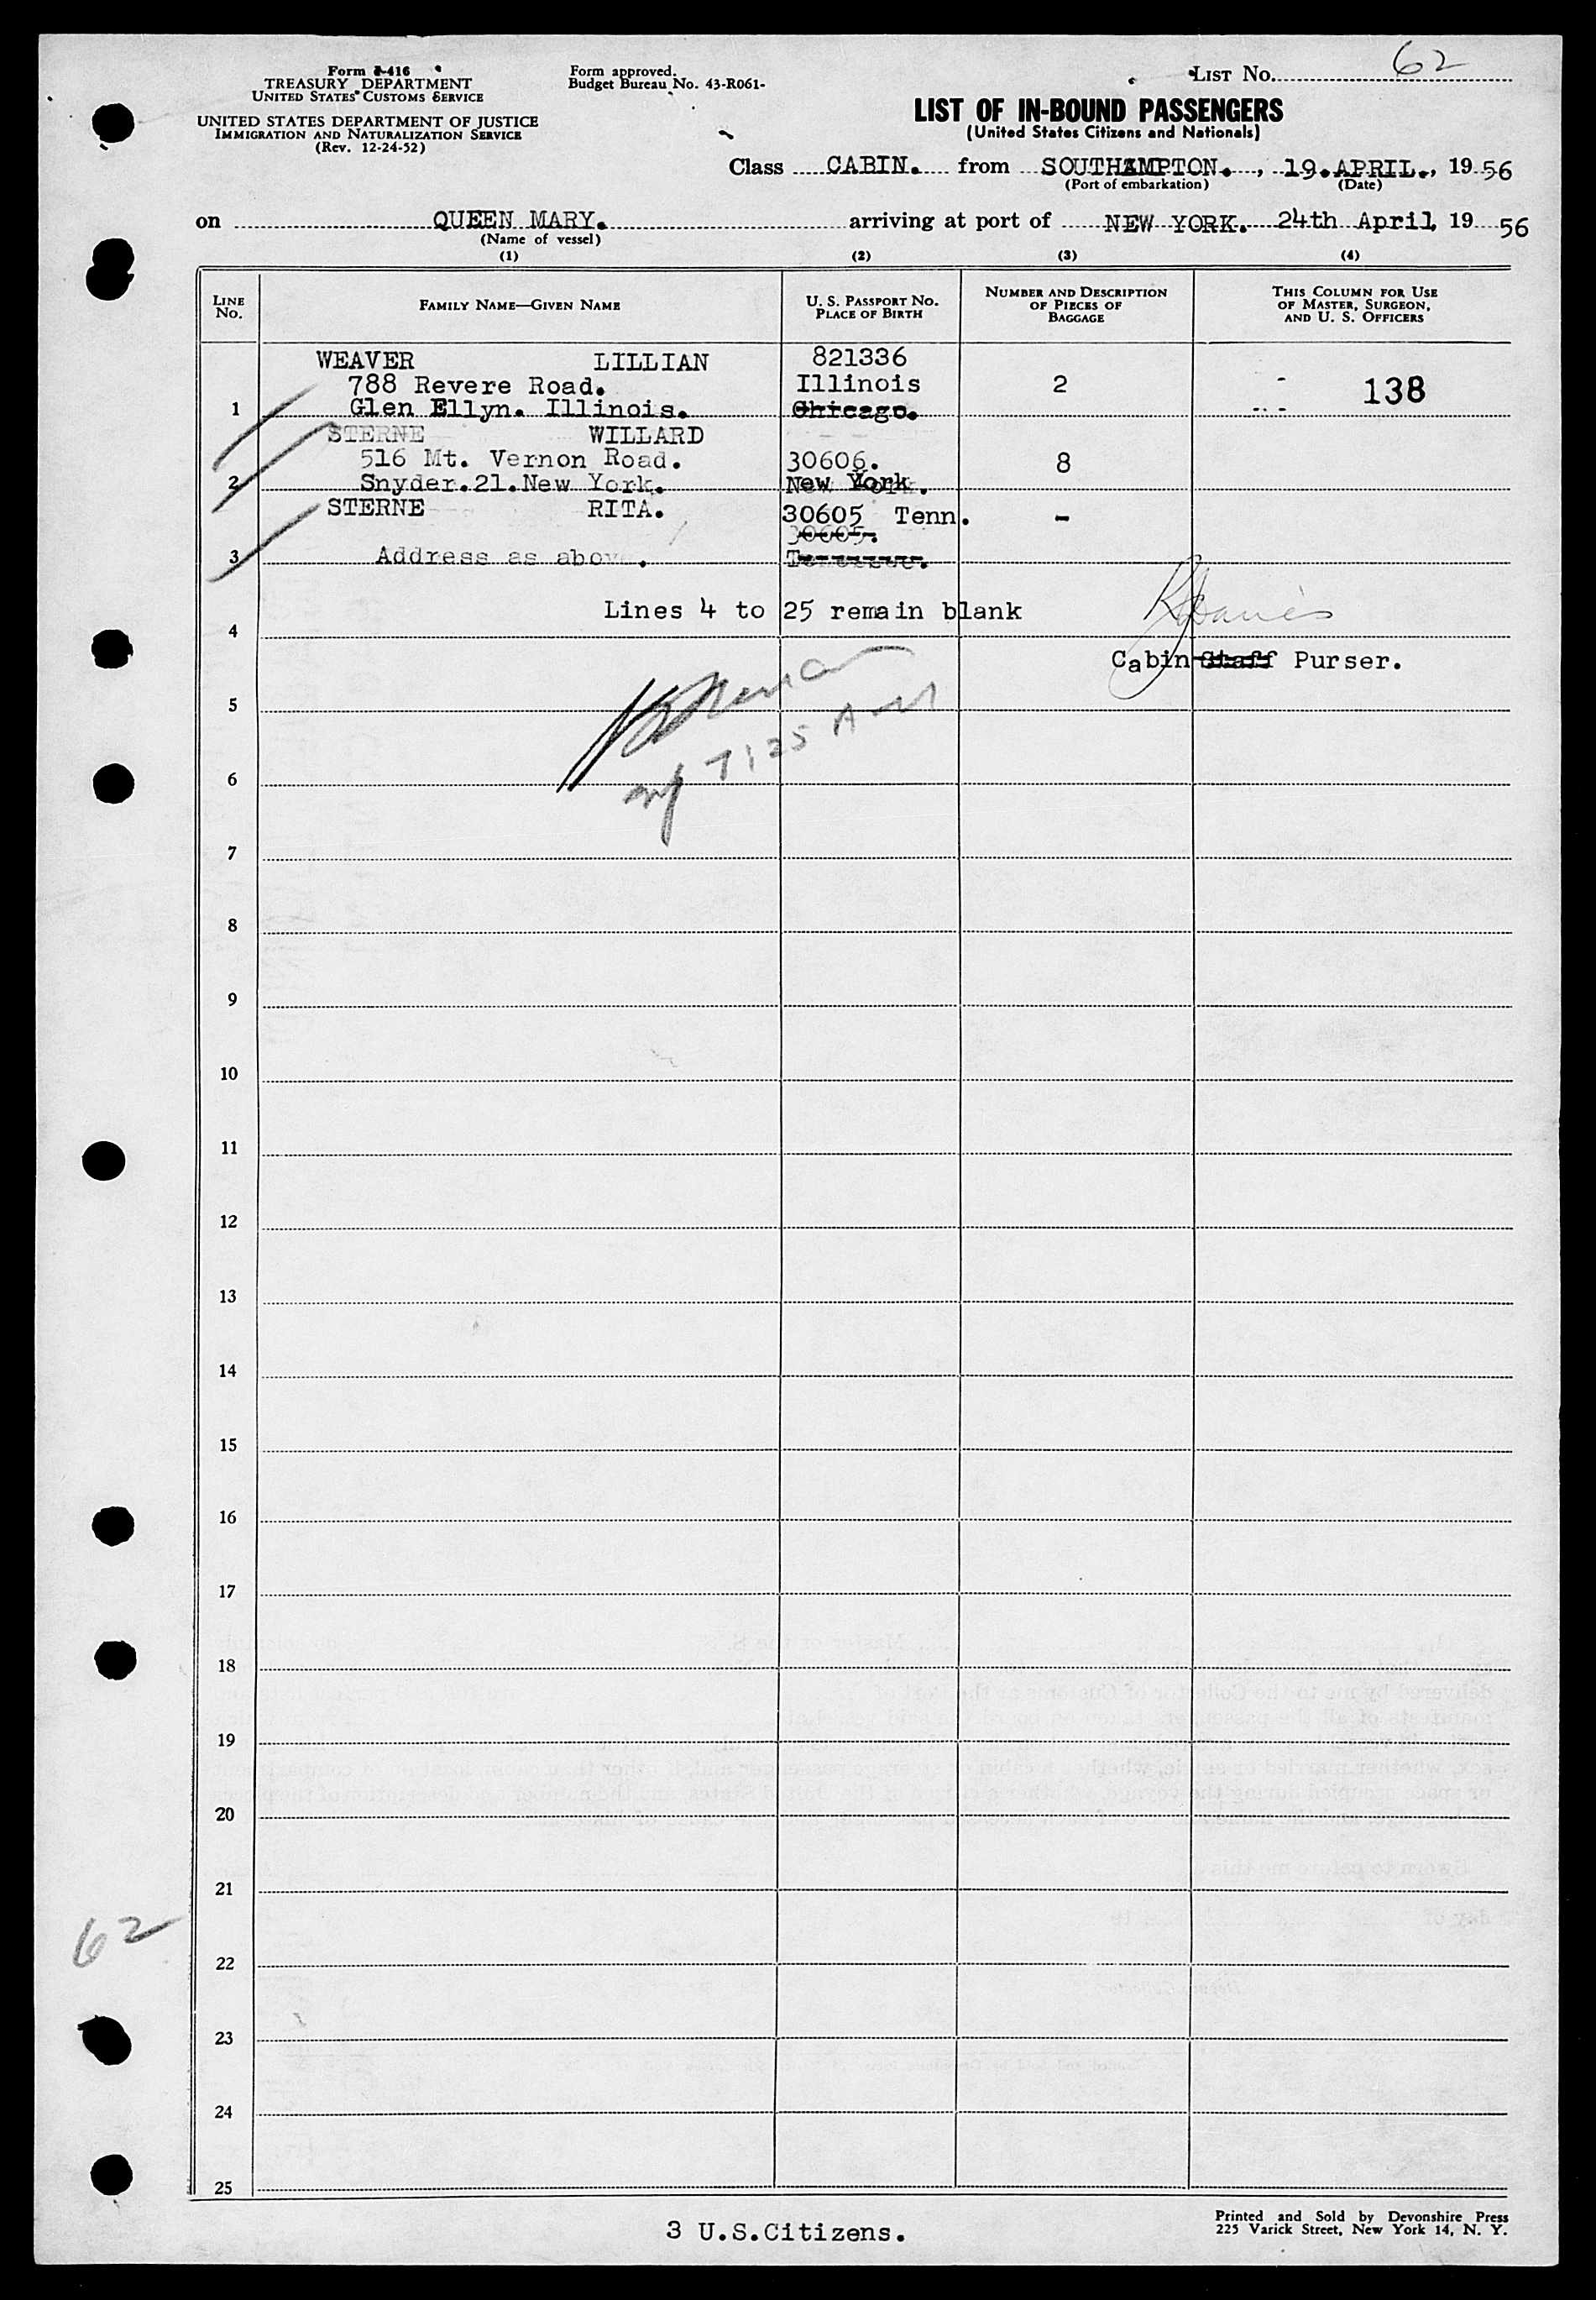 LIST No. 62
Form I-416
TREASURY DEPARTMENT
UNITED STATES CUSTOMS SERVICE
UNITED STATES DEPARTMENT OF JUSTICE
IMMIGRATION AND NATURALIZATION SERVICE
(Rev. 12-24-52)
Form approved.
Budget Bureau No. 43-R061-
LIST OF IN-BOUND PASSENGERS
(United States Citizens and Nationals)
Class CABIN. from SOUTHAMPTON., 19.APRIL., 19 56
(Port of embarkation) (Date)
on QUEEN MARY. arriving at port of NEW YORK. 24th April, 19 56
(Name of vessel)
(1) (2) (3) (4)
LINE No. FAMILY NAME—GIVEN NAME U. S. PASSPORT No. PLACE OF BIRTH NUMBER AND DESCRIPTION OF PIECES OF BAGGAGE THIS COLUMN FOR USE OF MASTER, SURGEON, AND U. S. OFFICERS
WEAVER LILLIAN 821336
788 Revere Road. Illinois 2 138
1 Glen Ellyn. Illinois. Chicago.
STERNE WILLARD
516 Mt. Vernon Road. 30606. 8
2 Snyder.21.New York. New York.
STERNE RITA. 30605 Tenn. -
30605.
3 Address as above. Tenessee.
Lines 4 to 25 remain blank
4
Cabin Staff Purser.
5
6
7
8
9
10
11
12
13
14
15
16
17
18
19
20
21
62
22
23
24
25
3 U.S.Citizens.
Printed and Sold by Devonshire Press
225 Varick Street, New York 14, N. Y.